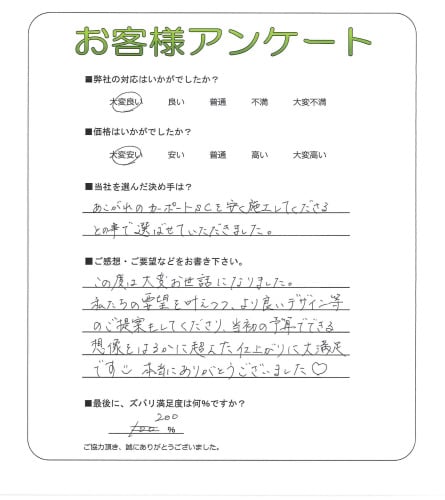 お客様アンケート
■弊社の対応はいかがでしたか?
大変良い 良い 普通 不満 大変不満
■価格はいかがでしたか?
大変安い 安い 普通 高い 大変高い
■当社を選んだ決め手は?
あこがれのカーポートSCを安く施工してくださる
との事で選ばせていただきました。
■ご感想・ご要望などをお書き下さい。
この度は大変お世話になりました。
私たちの要望を叶えつつ、より良いデザイン等
のご提案もしてくださり、当初の予算でできる
想像をはるかに超えた仕上がりに大満足
です 本当にありがとうございました♡
■最後に、ズバリ満足度は何%ですか?
200
100 %
ご協力頂き、誠にありがとうございました。